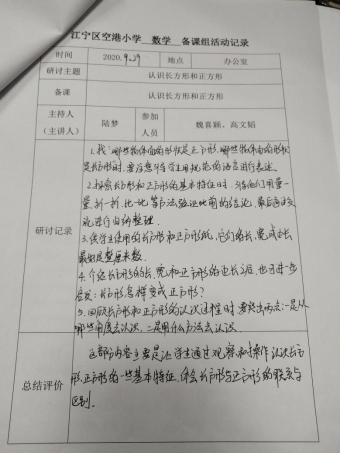 江宁区空港小学 数学 备课组活动记录
时间 2020.9.29 地点 办公室
研讨主题 认识长方形和正方形
备课 认识长方形和正方形
主持人（主讲人） 陆梦 参加人员 魏喜颖，高文韬
研讨记录
1.找：哪些物体面的形状是正方形，哪些物体面的形状
是长方形时，要注意指导学生用规范的语言进行表述。
2.探索长方形和正方形的基本特征时，
量、折一折、比一比等方法验证
进行归纳整理。
3.供学生使用的长方形和正方形纸，它们的长、宽或边长
最好是整厘米数。
4.介绍长方形的长、宽和正方形的边长后，也可进一步
长方形怎样变成正方形？
5.回顾长方形和正方形的认识过程时，要突出两点：一是从
哪些角度去认识，二是用什么方法去认识。
总结评价
这部分内容主要是让学生通过观察和操作认识长方
形、正方形的一些基本特征，体会长方形与正方形的联系与
区别。